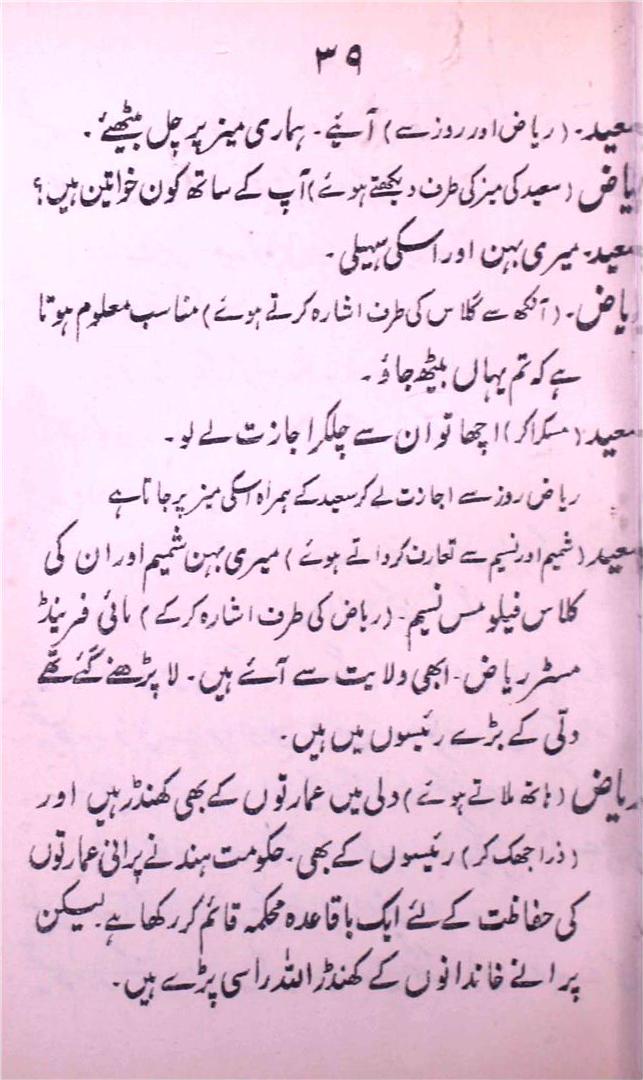 ۳۹
سعید۔ (ریاض اور روز سے) آئیے۔ ہماری میز پر چل بیٹھئے۔
ریاض (سعید کی میز کی طرف دیکھتے ہوئے) آپ کے ساتھ کون خواتین ہیں؟
سعید۔ میری بہن اور اسکی سہیلی۔
ریاض۔ (آنکھ سے گلاس کی طرف اشارہ کرتے ہوئے) مناسب معلوم ہوتا
ہے کہ تم یہاں بیٹھ جاؤ۔
سعید (مسکرا کر) اچھا تو ان سے چلکر اجازت لے لو۔
ریاض روز سے اجازت لے کر سعید کے ہمراہ اسکی میز پر جاتا ہے
سعید (شمیم اور نسیم سے تعارف کرواتے ہوئے) میری بہن شمیم اور ان کی
کلاس فیلو مس نسیم۔ (ریاض کی طرف اشارہ کر کے) مائی فرینڈ
مسٹر ریاض۔ ابھی ولایت سے آئے ہیں۔ لا پڑھنے گئے تھے
دلّی کے بڑے رئیسوں میں ہیں۔
ریاض (ہاتھ ملاتے ہوئے) دلی میں عمارتوں کے بھی کھنڈر ہیں اور
(ذرا جھک کر) رئیسوں کے بھی۔ حکومت ہند نے پرانی عمارتوں
کی حفاظت کے لئے ایک باقاعدہ محکمہ قائم کر رکھا ہے۔ لیکن
پرانے خاندانوں کے کھنڈر اللہ راسی پڑے ہیں۔